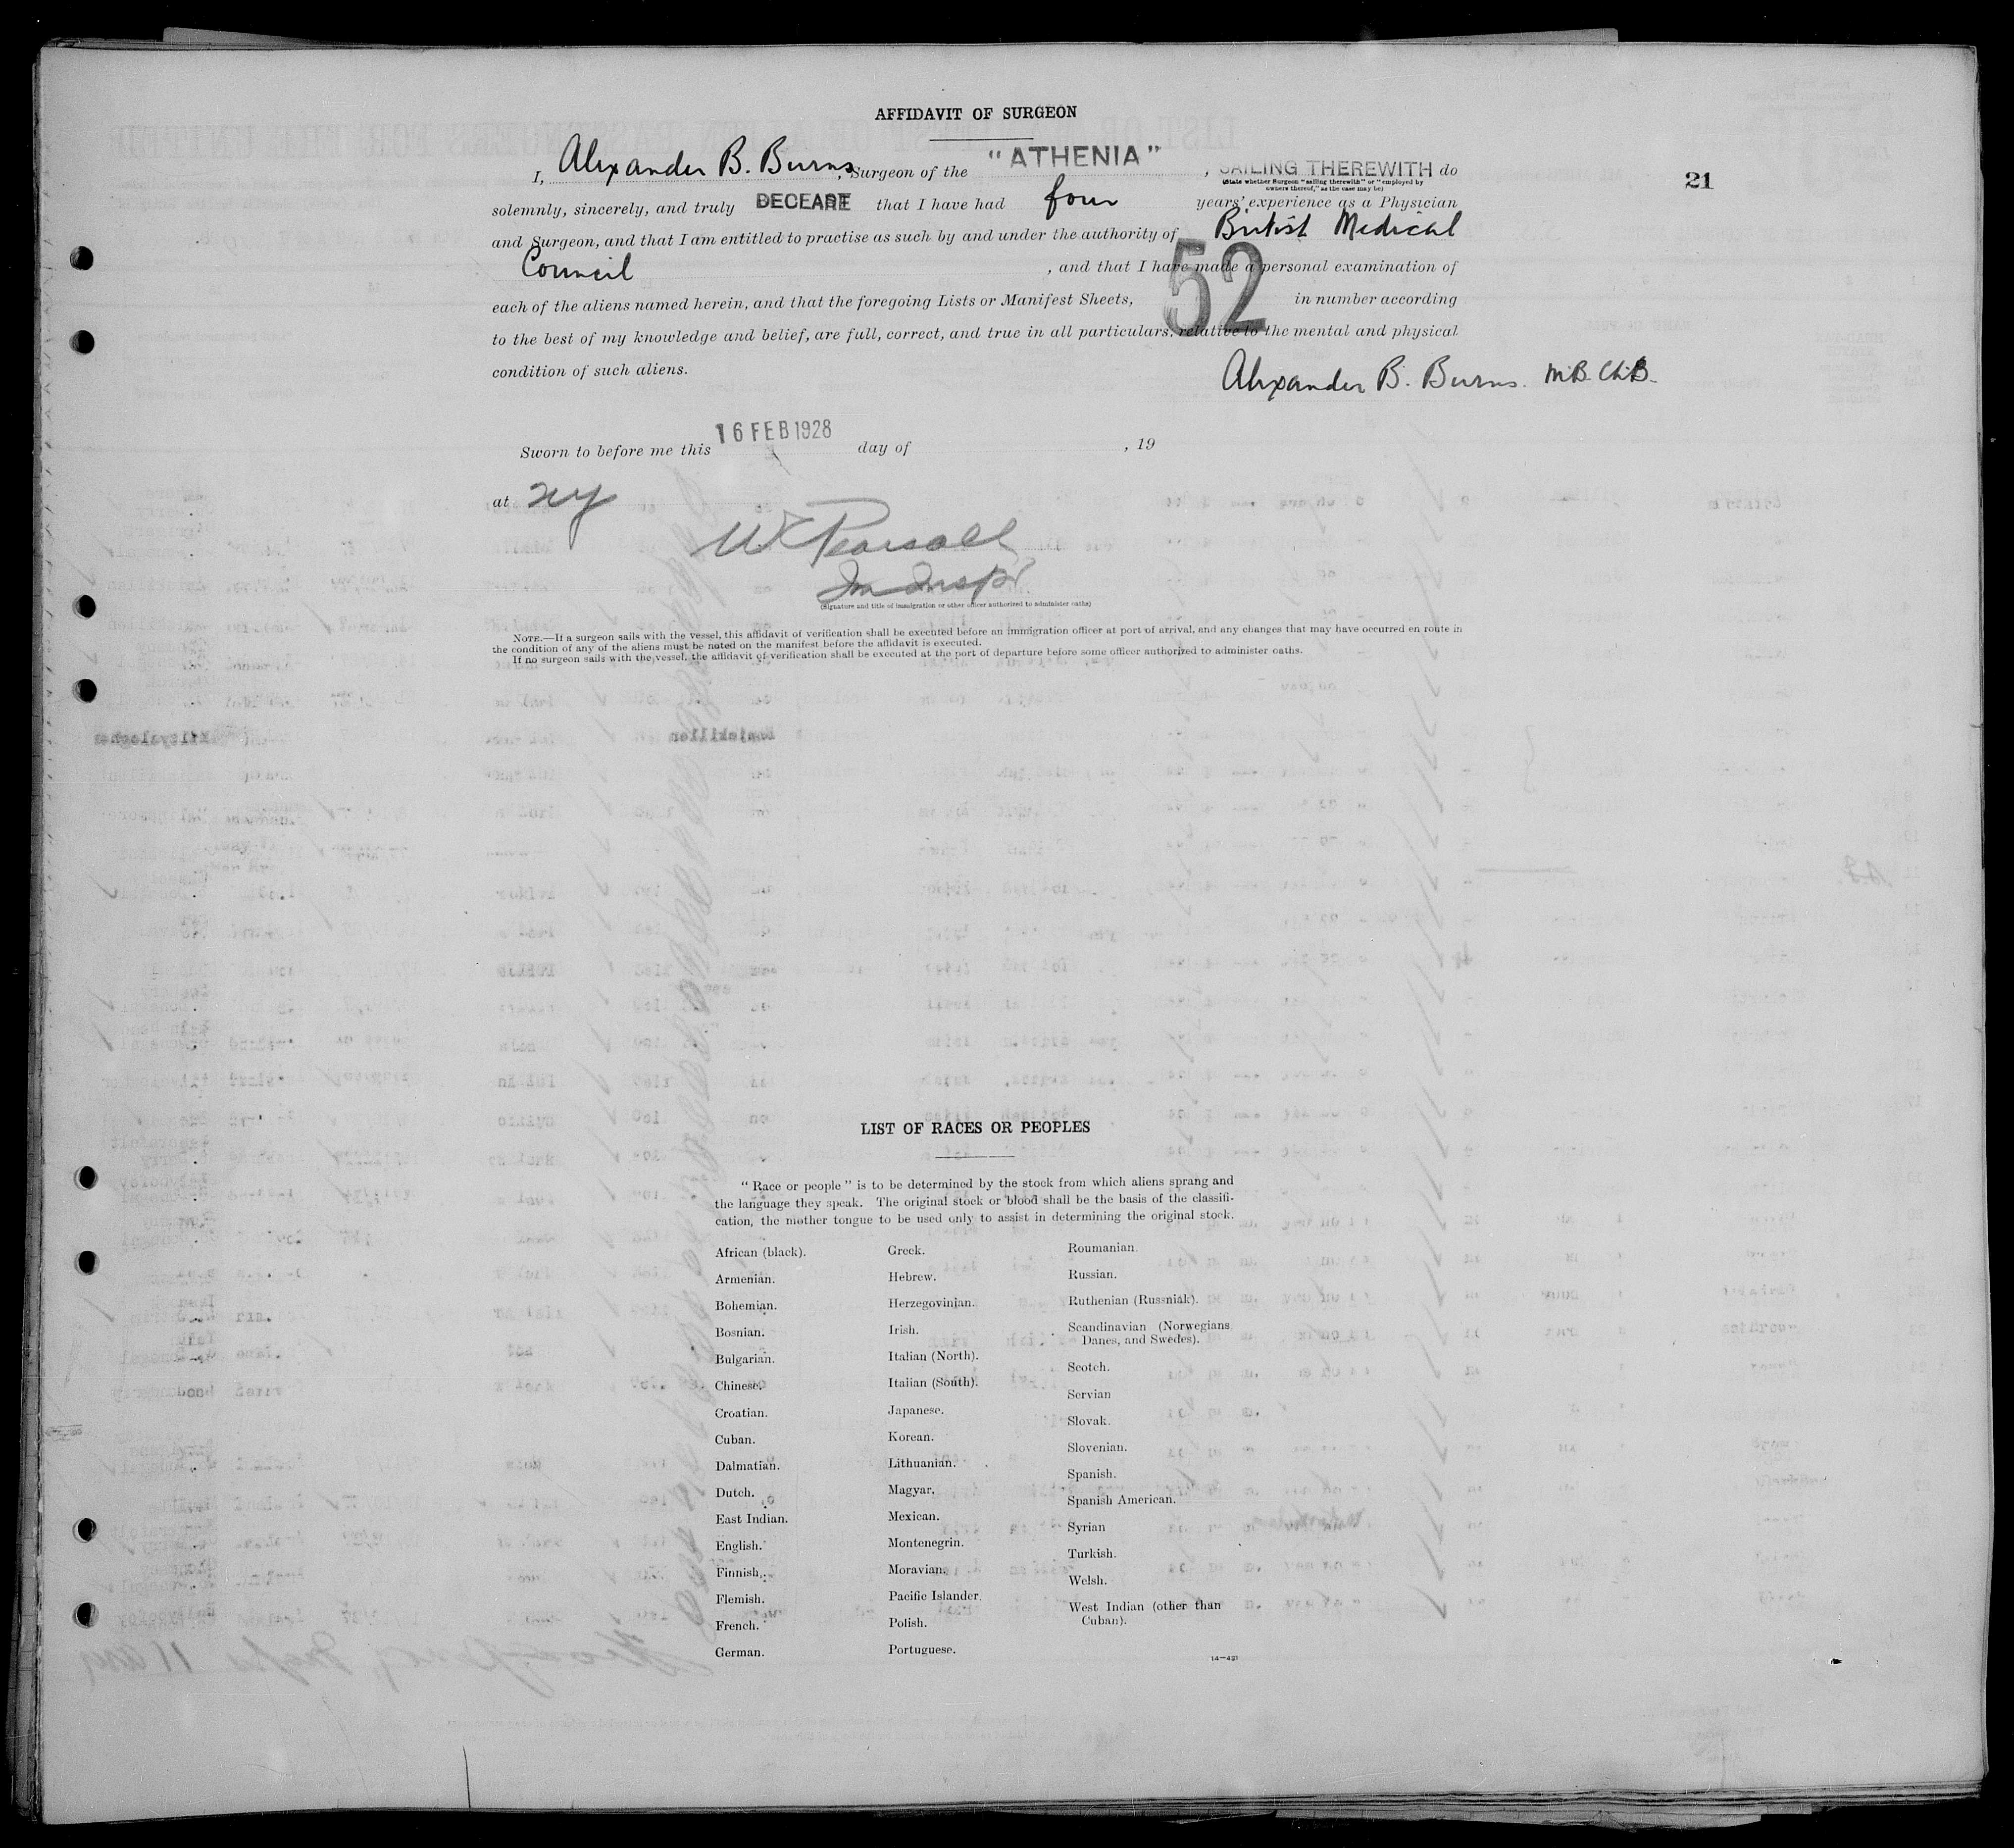 AFFIDAVIT OF SURGEON
I, Alexander B. Burns, Surgeon of the "ATHENIA", SAILING THEREWITH do
(State whether Surgeon "sailing therewith" or "employed by
owners thereof," as the case may be)
21
solemnly, sincerely, and truly DECLARE that I have had four years' experience as a Physician
and Surgeon, and that I am entitled to practise as such by and under the authority of British Medical
Council, and that I have made a personal examination of
each of the aliens named herein, and that the foregoing Lists or Manifest Sheets, 52 in number according
to the best of my knowledge and belief, are full, correct, and true in all particulars, relative to the mental and physical
condition of such aliens.
Alexander B. Burns. M.B. Ch.B.
Sworn to before me this 16 FEB 1928 day of , 19
at NY
W Pearsall
Im Insp
(Signature and title of immigration or other officer authorized to administer oaths)
NOTE.—If a surgeon sails with the vessel, this affidavit of verification shall be executed before an immigration officer at port of arrival, and any changes that may have occurred en route in
the condition of any of the aliens must be noted on the manifest before the affidavit is executed.
If no surgeon sails with the vessel, the affidavit of verification shall be executed at the port of departure before some officer authorized to administer oaths.
LIST OF RACES OR PEOPLES
"Race or people" is to be determined by the stock from which aliens sprang and
the language they speak. The original stock or blood shall be the basis of the classifi-
cation, the mother tongue to be used only to assist in determining the original stock.
African (black).
Armenian.
Bohemian.
Bosnian.
Bulgarian.
Chinese.
Croatian.
Cuban.
Dalmatian.
Dutch.
East Indian.
English.
Finnish.
Flemish.
French.
German.
Greek.
Hebrew.
Herzegovinian.
Irish.
Italian (North).
Italian (South).
Japanese.
Korean.
Lithuanian.
Magyar.
Mexican.
Montenegrin.
Moravian.
Pacific Islander.
Polish.
Portuguese.
Roumanian.
Russian.
Ruthenian (Russniak).
Scandinavian (Norwegians
Danes, and Swedes).
Scotch.
Servian
Slovak.
Slovenian.
Spanish.
Spanish American.
Syrian
Turkish.
Welsh.
West Indian (other than
Cuban).
14—421